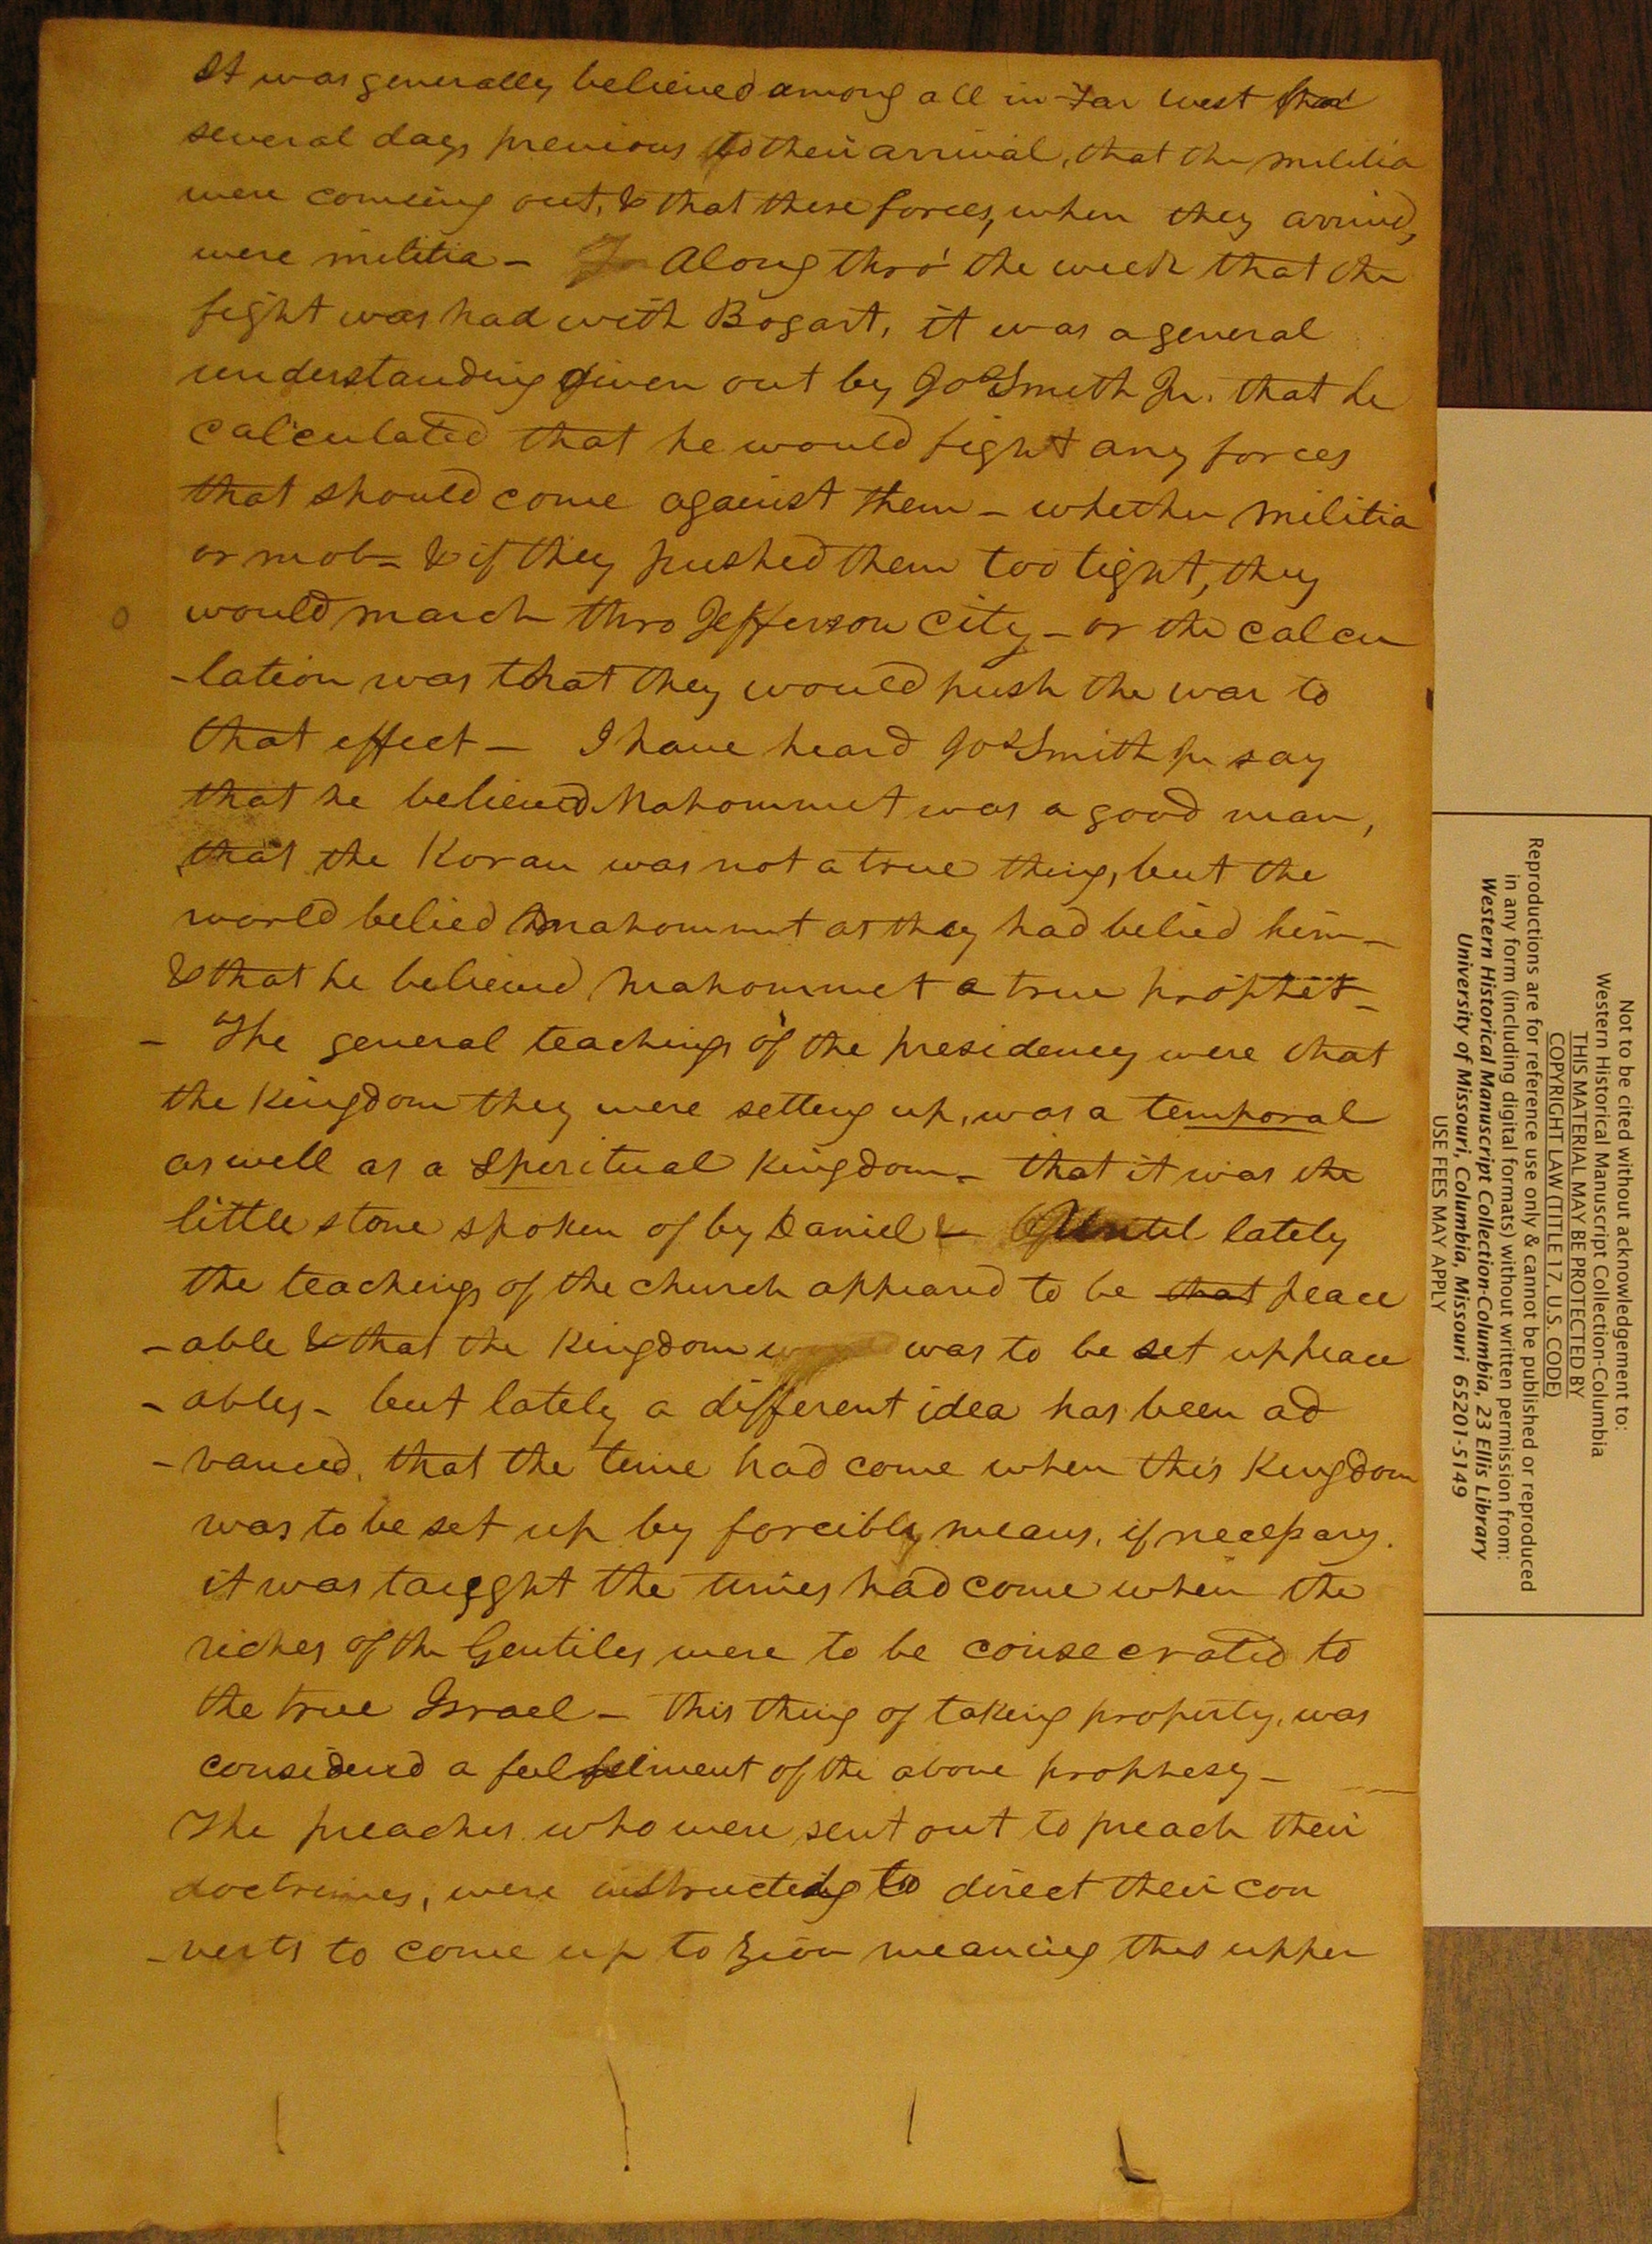 It was generally believed among all in Far West that
several days previous to their arrival, that the militia
were comeing out, & that these forces, when they arrived,
were militia - Along thro' the week that the
fight was had with Bogart, it was a general
understanding given out by Jos Smith Jr. that he
calculated that he would fight any forces
that should come against them - whether militia
or mob - & if they pushed them too tight, they
would march thro Jefferson City - or the calcu
-lation was that they would push the war to
that effect - I have heard Jos Smith Jr say
that he believed Mahommet was a good man,
that the Koran was not a true thing, but the
world belied Mahommet as they had belied him -
& that he believed Mahommet a true prophet -
- The general teachings of the presidency were that
the Kingdom they were setting up, was a temporal
as well as a Spiritual Kingdom - that it was the
little stone spoken of by Daniel & - Until lately
the teachings of the church appeared to be that peace
-able & that the Kingdom was to be set up peace
-ably - but lately a different idea has been ad
-vanced, that the time had come when this Kingdom
was to be set up by forcible means, if necessary.
it was taught the times had come when the
riches of the Gentiles were to be consecrated to
the true Israel - This thing of taking property, was
considered a fulfilment of the above prophesy -
The preachers who were sent out to preach their
doctrines, were instructed to direct their con
-verts to come up to Zion meaning this upper
Not to be cited without acknowledgement to:
Western Historical Manuscript Collection-Columbia
THIS MATERIAL MAY BE PROTECTED BY
COPYRIGHT LAW (TITLE 17, U.S. CODE)
Reproductions are for reference use only & cannot be published or reproduced
in any form (including digital formats) without written permission from:
Western Historical Manuscript Collection-Columbia, 23 Ellis Library
University of Missouri, Columbia, Missouri 65201-5149
USE FEES MAY APPLY